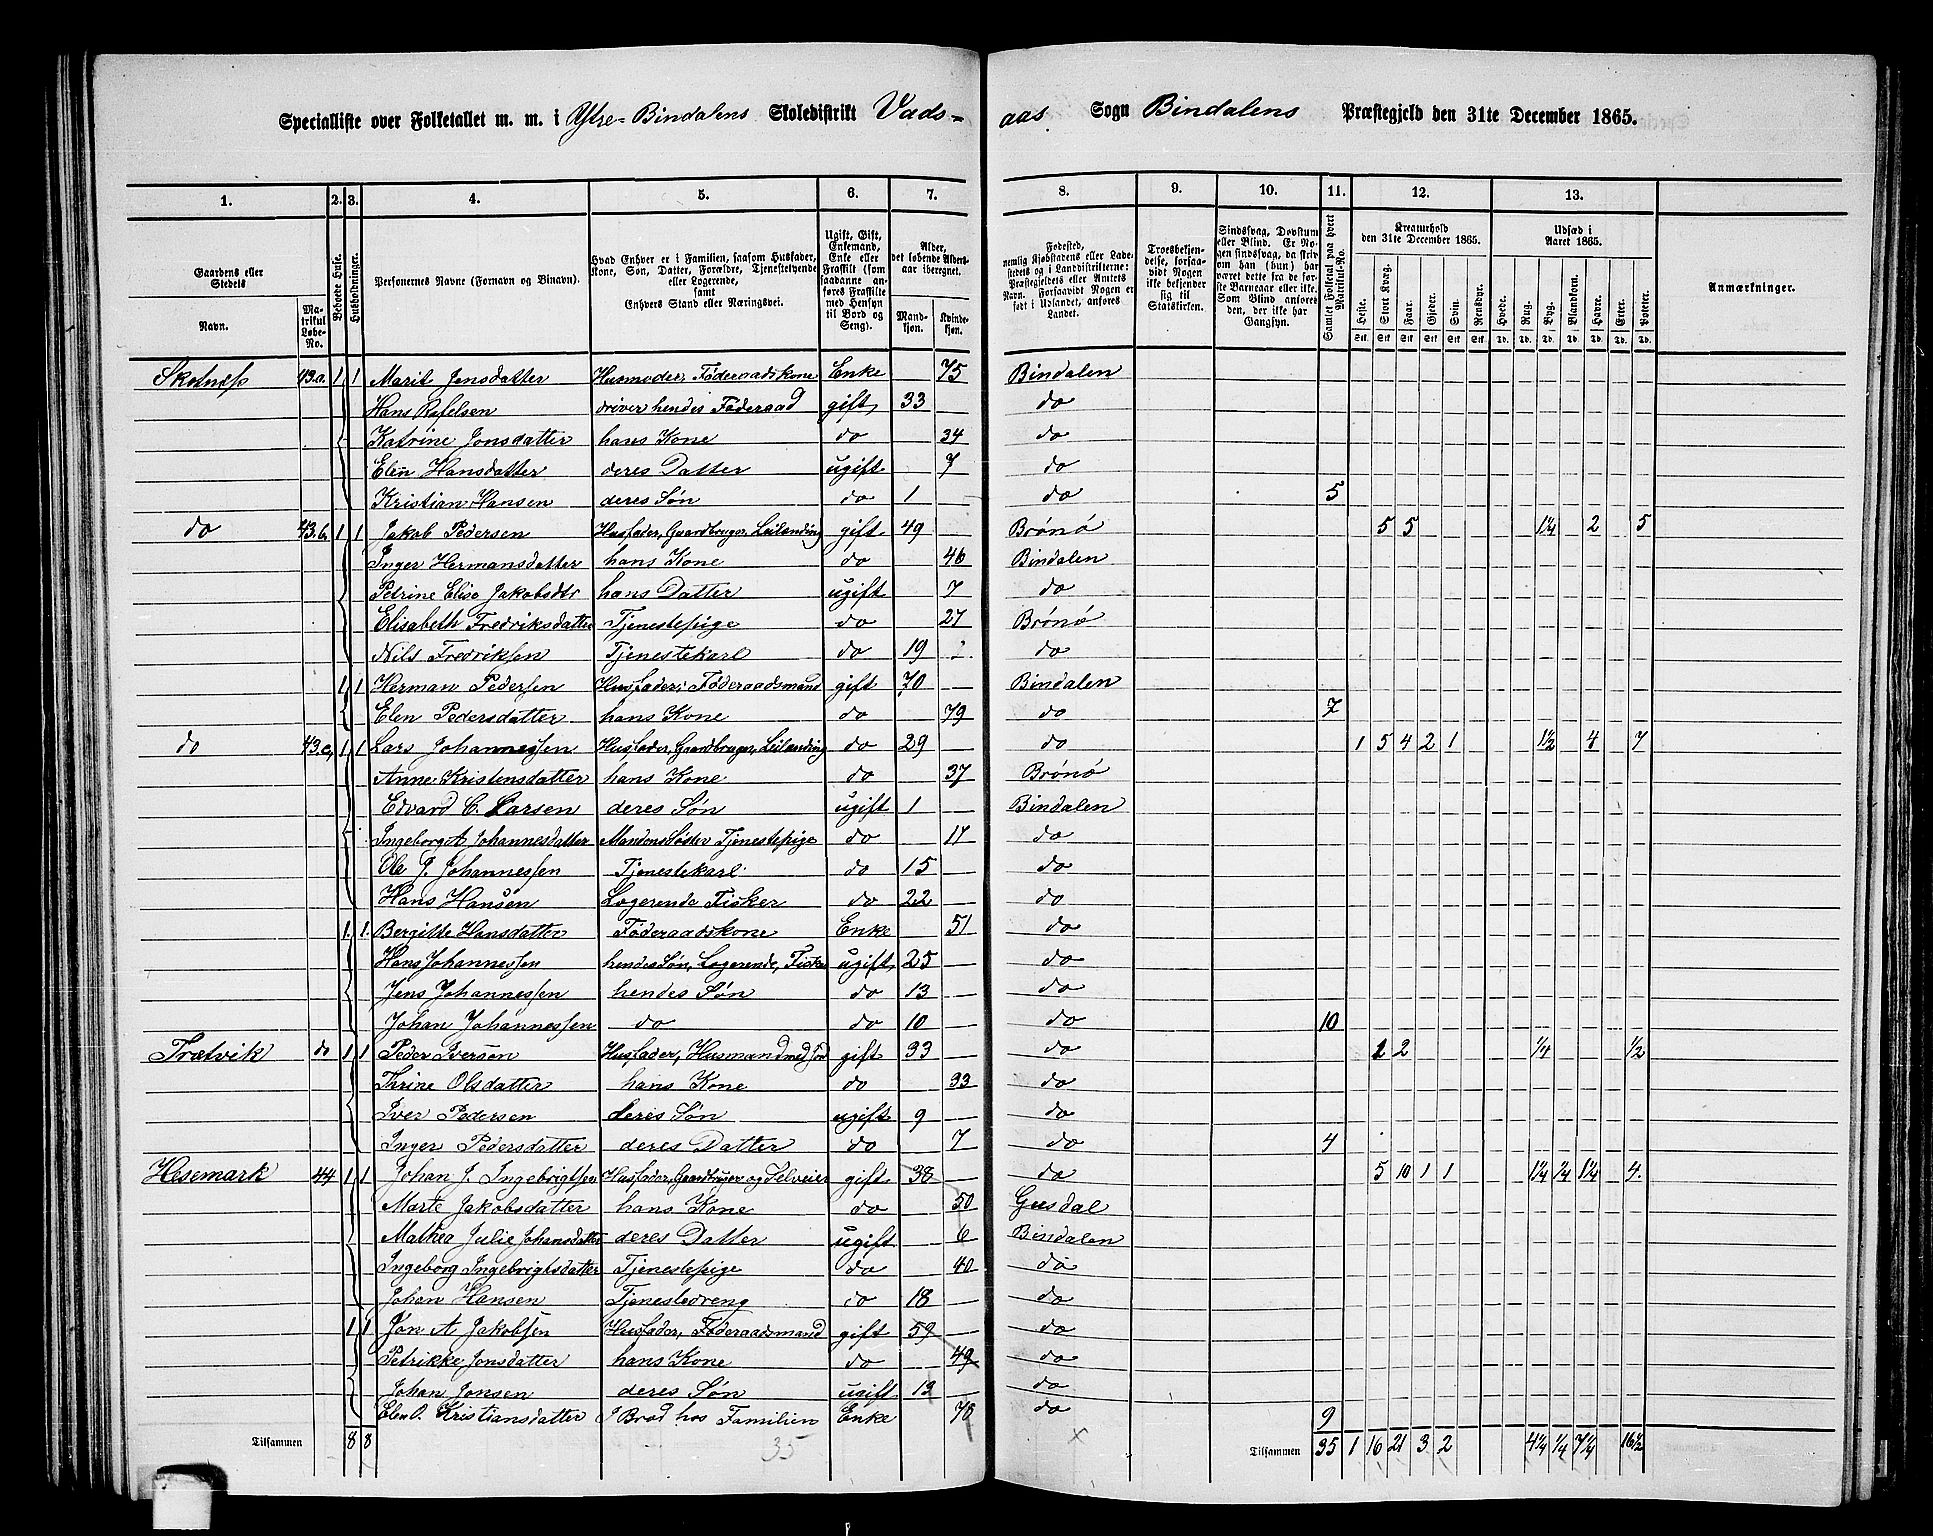 Specialliste over Folketallet m. m. i Ytre-Bindalens Skoledistrikt Vadsaas Sogn Bindalens Præstegjeld den 31te December 1865.
1. 2. 3. 4. 5. 6. 7. 8. 9. 10. 11. 12. 13.
Gaardens eller Stedets Navn. Matrikul Løbe-No. Beboede Huse. Husholdninger. Personernes Navne (Fornavn og Binavn). Hvad Enhver er i Familien, saasom Husfader, Kone, Søn, Datter, Forældre, Tjenestetyende eller Logerende, samt Enhvers Stand eller Næringsvei. Ugift, Gift, Enkemand, Enke eller Fraskilt (som saadanne anføres Fraskilte med Hensyn til Bord og Seng). Alder, det løbende Alders-aar iberegnet. Mandkjøn. Kvindekjøn.
Fødested, nemlig Kjøbstadens eller Ladestedets og i Landdistrikterne: Præstegjeldets eller Amtets Navn. Forsaavidt Nogen er født i Udlandet, anføres Landet. Troesbekjendelse, forsaavidt Nogen ikke bekjender sig til Statskirken. Sindssvag, Døvstum eller Blind. Er Nogen sindssvag, da skrives om han (hun) har været dette fra de første Barneaar eller ikke. Som Blind anføres den, der ikke har Gangsyn. Samlet Folketal paa hvert Matrikul-No. Kreaturhold den 31te December 1865. Heste. Stort Kvæg. Faar. Gjeder. Svin. Rensdyr. Udsæd i Aaret 1865. Hvede. Rug. Byg. Blandkorn. Havre. Erter. Poteter. Anmærkninger.
Skotnes 43.a. 1 1 Marit Jensdatter Husmoder, Føderaadskone Enke 75 Bindalen
Hans Rafelsen driver hendes Føderaad gift 33 do
Katrine Jonsdatter hans Kone do 34 do
Elen Hansdatter deres Datter ugift 7 do
Kristian Hansen deres Søn do 1 do 5
do 43.b. 1 1 Jakob Pedersen Husfader, Gaardbruger, Leilænding gift 49 Brønø 5 5 1¼ 2 5
Inger Hermansdatter hans Kone do 46 Bindalen
Petrine Elise Jakobsdtr hans Datter ugift 7 do
Elisabeth Fredriksdatter Tjenestepige do 27 Brønø
Nils Fredriksen Tjenestekarl do 19 do
1 1 Herman Pedersen Husfader, Føderaadsmand gift 70 Bindalen
Elen Pedersdatter hans Kone do 79 do 7
do 43.c. 1 1 Lars Johannessen Husfader, Gaardbruger, Leilænding do 29 do 1 5 4 2 1 1½ 4 7
Anne Kristensdatter hans Kone do 37 Brønø
Edvard C. Larsen deres Søn ugift 1 Bindalen
Ingeborg A Johannesdatter Mandens Søster Tjenestepige do 17 do
Ole J. Johannessen Tjenestekarl do 15 do
Hans Hansen Logerende Fisker do 22 do
1. 1. Bergitte Hansdatter Føderaadskone Enke 51 do
Hans Johannessen hendes Søn, Logerende, Fisker ugift 25 do
Jens Johannessen hendes Søn do 13 do
Johan Johannessen do do 10 do 10
Trætvik do 1 1 Peder Iversen Husfader, Husmand med Jord gift 33 do 1 2 ¼ ½
Thrine Olsdatter hans Kone do 33 do
Iver Pedersen deres Søn ugift 9 do
Inger Pedersdatter deres Datter do 7 do 4
Hesemark 44 1 1 Johan J. Ingebrigtsen Husfader, Gaardbruger og Selveier gift 38 do 5 10 1 1 1¼ ¼ 1¼ 4.
Marte Jakobsdatter hans Kone do 50 Gusdal
Mathea Julie Johansdatter deres Datter ugift 6 Bindalen
Ingeborg Ingebrigtsdatter Tjenestepige do 40 do
Johan Hansen Tjenestedreng do 18 do
1 1 Jon A Jakobsen Husfader, Føderaadsmand gift 59 do
Petrikke Jonsdatter hans Kone do 49 do
Johan Jonsen deres Søn ugift 13 do
Elen O. Kristiansdatter I Brød hos Familien Enke 78 do 9
Tilsammen 8 8 35 Tilsammen 35 1 16 21 3 2 4¼ ¼ 7¼ 16½